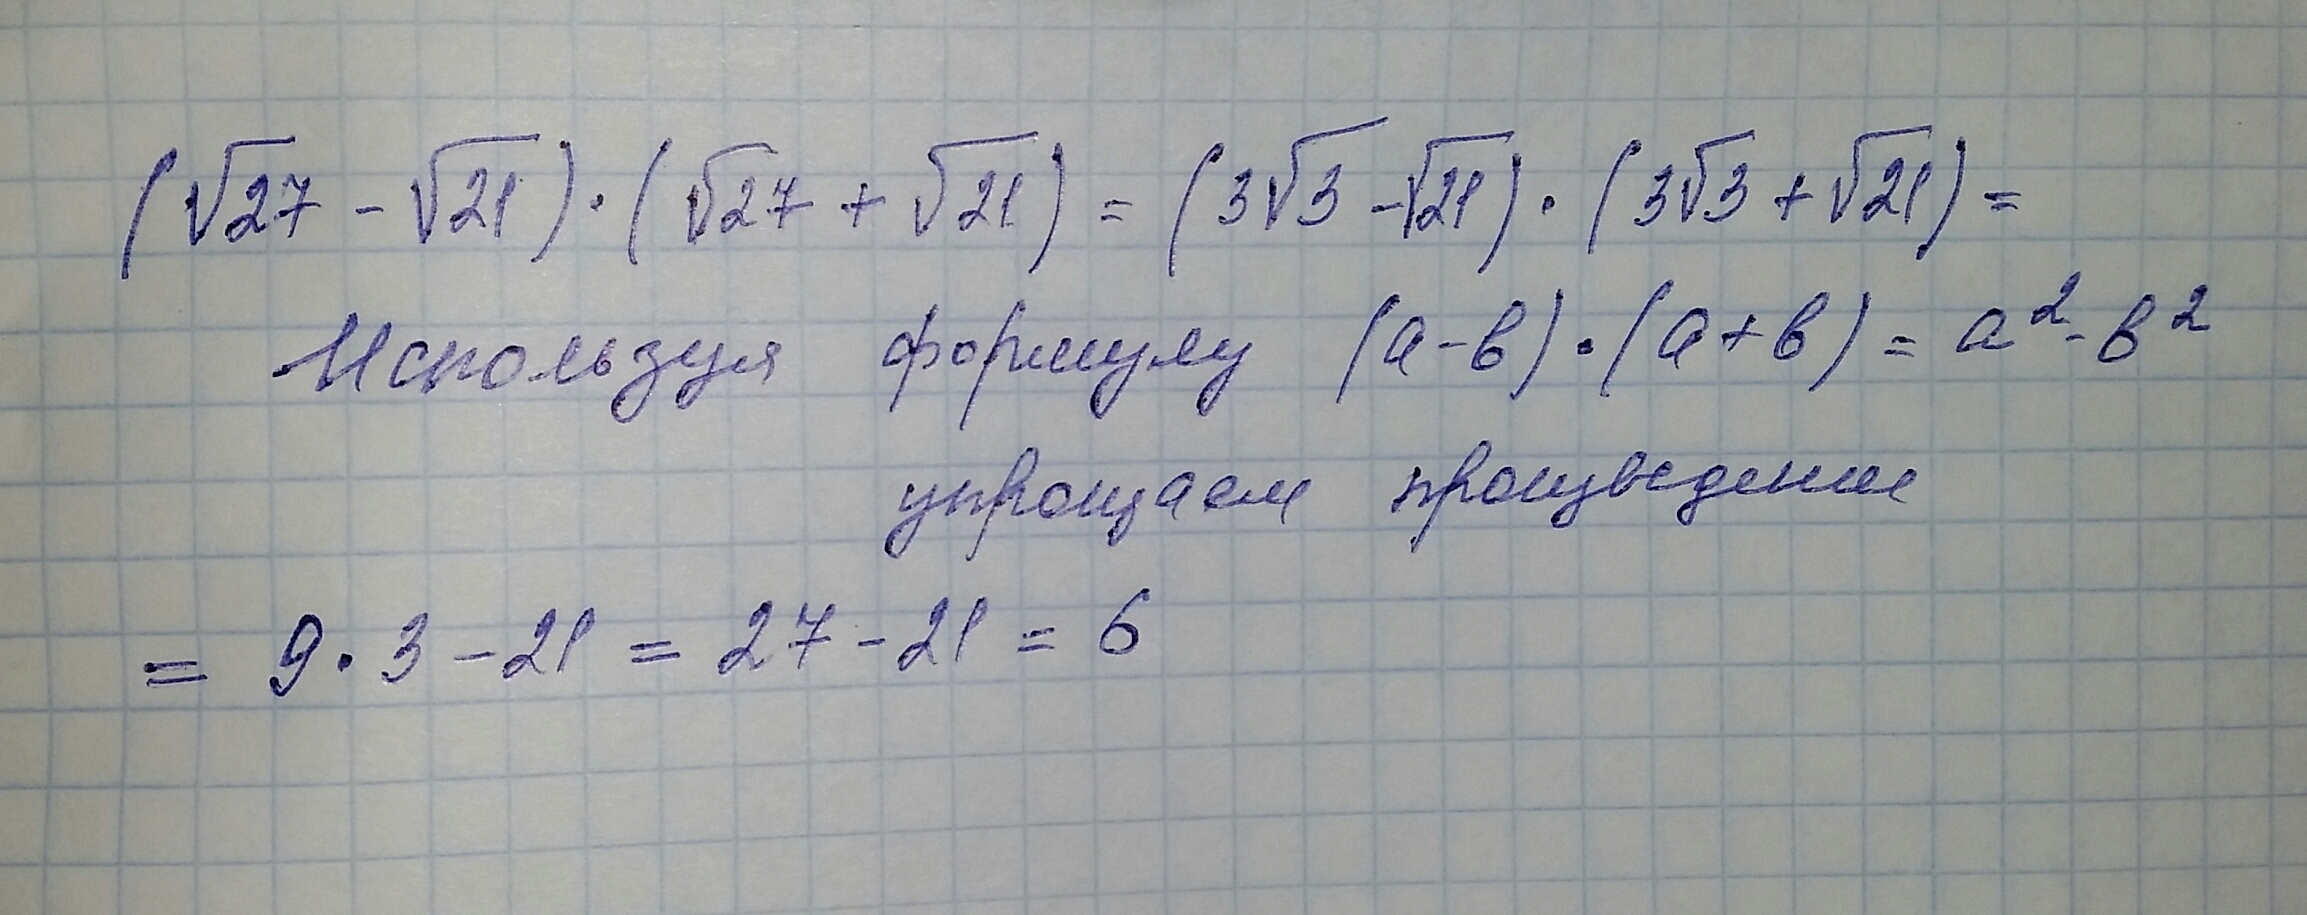 (√27 - √21) · (√27 + √21) = (3√3 - √21) · (3√3 + √21) =
Используя формулу (а - в) · (а + в) = а² - в²
упрощаем произведение
= 9 · 3 - 21 = 27 - 21 = 6